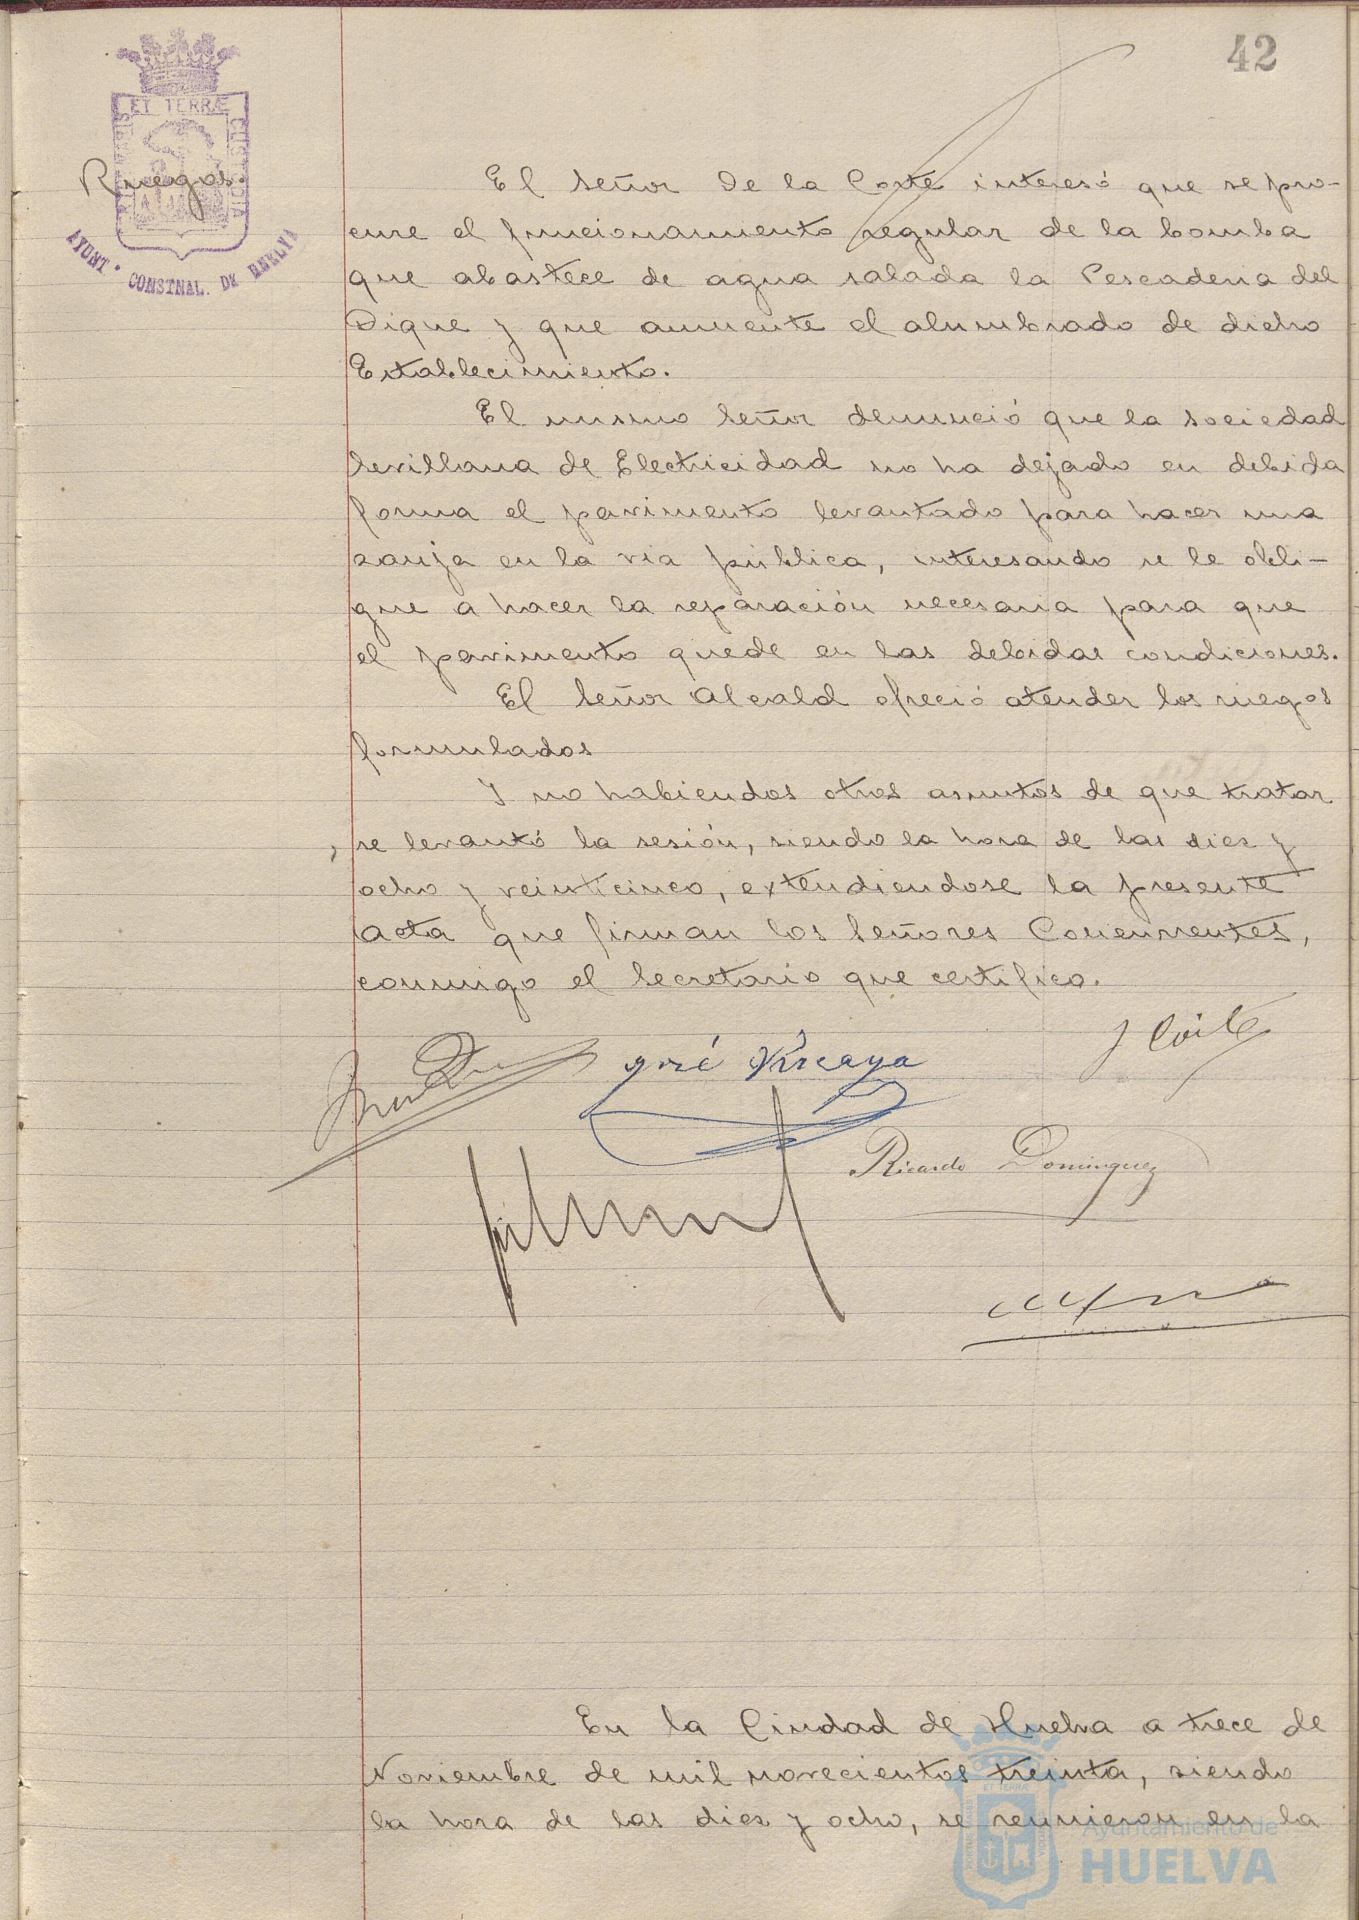 42
ET TERRÆ
CUSTODIA
AYUNT. CONSTNAL. DE HUELVA
Ruegos.
El Señor De la Corte interesó que se pro-
cure el funcionamiento regular de la bomba
que abastece de agua salada la Pescaderia del
Dique y que aumente el alumbrado de dicho
Establecimiento.
El mismo Señor denunció que la Sociedad
Sevillana de Electricidad no ha dejado en debida
forma el pavimento levantado para hacer una
zanja en la via pública, interesando se le obli-
gue a hacer la reparación necesaria para que
el pavimento quede en las debidas condiciones.
El Señor Alcald ofreció atender los ruegos
formulados
Y no habiendos otros asuntos de que tratar
se levantó la sesión, siendo la hora de las dies y
ocho y veinticinco, extendiendose la presente
acta que firman los Señores Concurrentes,
conmigo el Secretario que certifico.
J Corte
José Vizcaya
Ricardo Dominguez
En la Ciudad de Huelva a trece de
Noviembre de mil novecientos treinta, siendo
la hora de las dies y ocho, se reunieron en la
Ayuntamiento de
HUELVA